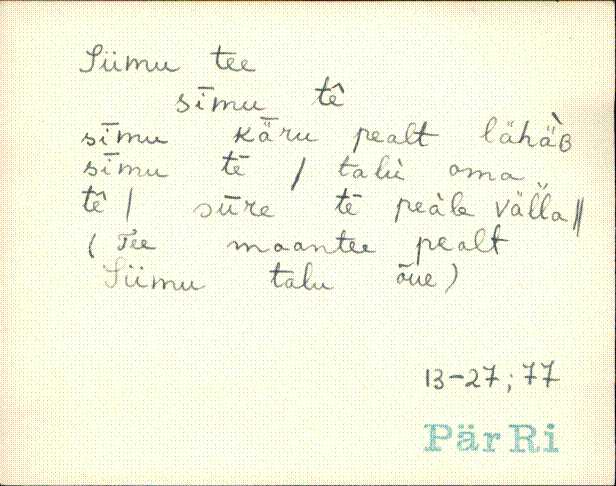 Siimu tee
sīmu tê
sīmu kǟru pealt lähäʙ̀
sīmu tē / talù oma
tê / sūre tē peàle vällä ||
(Tee maantee pealt
Siimu talu õue)
13-27; 77
PärRi